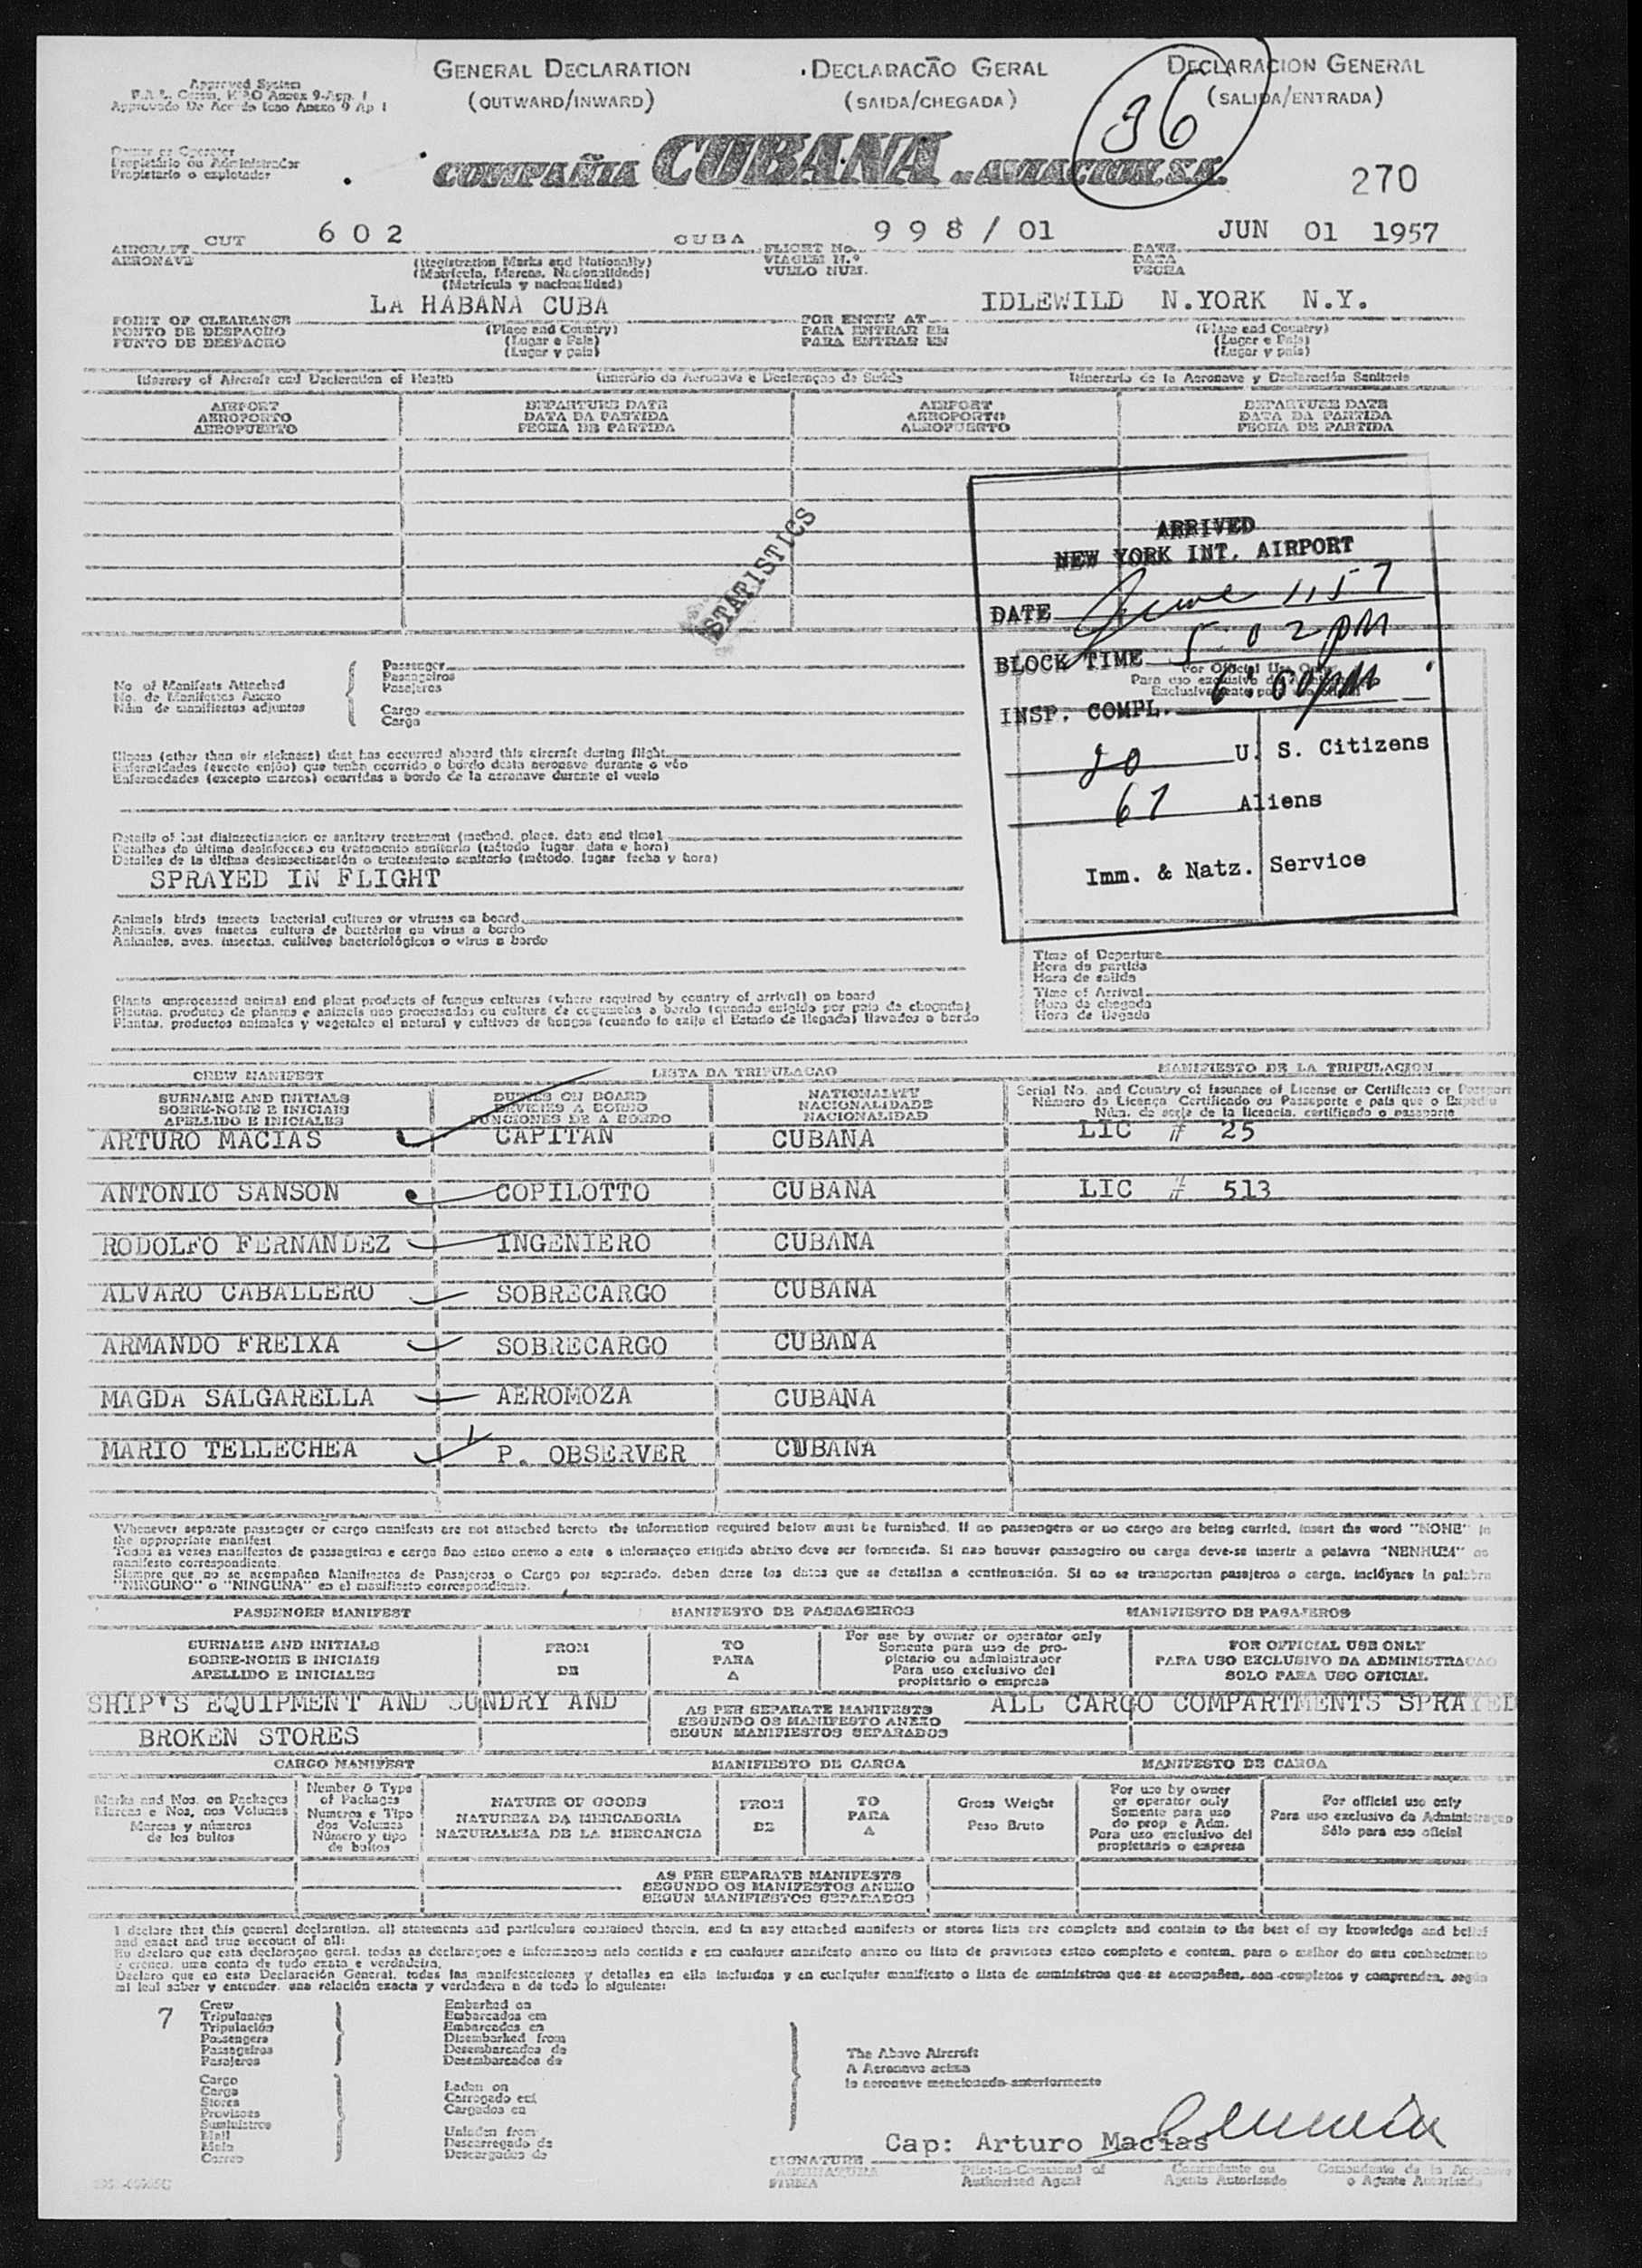 GENERAL DECLARATION
(OUTWARD/INWARD)
DECLARACÃO GERAL
(SAIDA/CHEGADA)
DECLARACION GENERAL
(SALIDA/ENTRADA)
36
Approved System
Owner or Operator
Propietário ou Administrador
Propietario o explotador
COMPAÑIA CUBANA DE AVIACION, S.A.
270
AIRCRAFT CUT 602 CUBA FLIGHT No. 998/01 DATE JUN 01 1957
AERONAVE VIAGEM N.º DATA
VUELO NUM. FECHA
(Registration Marks and Nationality)
(Matrícula, Marcas, Nacionalidade)
(Matricula y nacionalidad)
POINT OF CLEARANCE LA HABANA CUBA FOR ENTRY AT IDLEWILD N.YORK N.Y.
PONTO DE DESPACHO PARA ENTRAR EM
PUNTO DE DESPACHO PARA ENTRAR EN
(Place and Country) (Place and Country)
(Lugar e Pais) (Lugar e Pais)
(Lugar y pais) (Lugar y pais)
Itinerary of Aircraft and Declaration of Health Itinerário da Aeronave e Declaraçao de Saúde Itinerario de la Aeronave y Declaración Sanitaria
AIRPORT DEPARTURE DATE AIRPORT DEPARTURE DATE
AEROPORTO DATA DA PARTIDA AEROPORTO DATA DA PARTIDA
AEROPUERTO FECHA DE PARTIDA AEROPUERTO FECHA DE PARTIDA
STATISTICS
ARRIVED
NEW YORK INT. AIRPORT
DATE June 1, 57
BLOCK TIME 5:02 PM
INSP. COMPL. 6:00 PM
20 U. S. Citizens
67 Aliens
Imm. & Natz. Service
For Official Use Only
No. of Manifests Attached
No. de Manifestos Anexo
Núm. de manifiestos adjuntos
Passenger
Passageiros
Pasajeros
Cargo
Carga
Illness (other than air sickness) that has occurred aboard this aircraft during flight
Enfermidades (exceto enjôo) que tenha ocorrido a bordo desta aeronave durante o vôo
Enfermedades (excepto mareos) ocurridas a bordo de la aeronave durante el vuelo
Details of last disinsectizacion or sanitary treatment (method, place, date and time)
Detalhes da última desinfeccao ou tratamento sanitario (método lugar, data e hora)
Detalles de la última desinsectización o tratamiento sanitario (método, lugar fecha y hora)
SPRAYED IN FLIGHT
Animals birds insects bacterial cultures or viruses on board
Animais, aves insetos cultura de bactérias ou virus a bordo
Animales, aves, insectos, cultivos bacteriológicos o virus a bordo
Time of Departure
Hora da partida
Hora de salida
Time of Arrival
Hora da chegada
Hora de llegada
Plants unprocessed animal and plant products of fungus cultures (where required by country of arrival) on board
Plantas, produtos de plantas e animais nao processados ou cultura de cogumelos a bordo (quando exigido por pais de chegada)
Plantas, productos animales y vegetales al natural y cultivos de hongos (cuando lo exija el Estado de llegada) llevados a bordo
CREW MANIFEST LISTA DA TRIPULACAO MANIFIESTO DE LA TRIPULACION
SURNAME AND INITIALS DUTIES ON BOARD NATIONALITY Serial No. and Country of Issuance of License or Certificate or Passport
SOBRE-NOME E INICIAIS DEVERES A BORDO NACIONALIDADE Número da Licença, Certificado ou Passaporte e pais que o Expediu
APELLIDO E INICIALES FUNCIONES DE A BORDO NACIONALIDAD Núm. de serie de la licencia, certificado o pasaporte
ARTURO MACIAS CAPITAN CUBANA LIC # 25
ANTONIO SANSON COPILOTTO CUBANA LIC # 513
RODOLFO FERNANDEZ INGENIERO CUBANA
ALVARO CABALLERO SOBRECARGO CUBANA
ARMANDO FREIXA SOBRECARGO CUBANA
MAGDA SALGARELLA AEROMOZA CUBANA
MARIO TELLECHEA P. OBSERVER CUBANA
Whenever separate passenger or cargo manifests are not attached hereto the information required below must be furnished. If no passengers or no cargo are being carried, insert the word "NONE" in
the appropriate manifest
Todas as vezes manifestos de passageiros e carga ñao estao anexo a este a informaçao exigida abaixo deve ser fornecida. Si nao houver passageiro ou carga deve-se inserir a palavra "NENHUM" ao
manifesto correspondiente.
Siempre que no se acompañen Manifiestos de Pasajeros o Cargo por separado, deben darse los datos que se detallan a continuación. Si no se transportan pasajeros o carga, inclúyase la palabra
"NINGUNO" o "NINGUNA" en el manifiesto correspondiente.
PASSENGER MANIFEST MANIFESTO DE PASSAGEIROS MANIFIESTO DE PASAJEROS
SURNAME AND INITIALS
SOBRE-NOME E INICIAIS
APELLIDO E INICIALES
FROM
DE
TO
PARA
A
For use by owner or operator only
Somente para uso de pro-
pietario ou administrauor
Para uso exclusivo del
propietario o empresa
FOR OFFICIAL USE ONLY
PARA USO EXCLUSIVO DA ADMINISTRACAO
SOLO PARA USO OFICIAL
SHIP'S EQUIPMENT AND SUNDRY AND
BROKEN STORES
AS PER SEPARATE MANIFESTS
SEGUNDO OS MANIFESTO ANEXO
SEGUN MANIFIESTOS SEPARADOS
ALL CARGO COMPARTMENTS SPRAYED
CARGO MANIFEST MANIFIESTO DE CARGA MANIFESTO DE CARGA
Marks and Nos. on Packages
Marcas e Nos. nos Volumes
Marcas y números
de los bultos
Number & Type
of Packages
Numeros e Tipo
dos Volumes
Número y tipo
de bultos
NATURE OF GOODS
NATUREZA DA MERCADORIA
NATURALEZA DE LA MERCANCIA
FROM
DE
TO
PARA
A
Gross Weight
Peso Bruto
For use by owner
or operator only
Somente para uso
do prop e Adm.
Para uso exclusivo del
propietario o empresa
For official use only
Para uso exclusivo da Administraçao
Sólo para uso oficial
AS PER SEPARATE MANIFESTS
SEGUNDO OS MANIFESTOS ANEXO
SEGUN MANIFIESTOS SEPARADOS
I declare that this general declaration, all statements and particulars contained therein, and in any attached manifests or stores lists are complete and contain to the best of my knowledge and belief
and exact and true account of all:
Eu declaro que esta declaraçao geral, todas as declaraçoes e informacoes nela contida e em cualquer manifesto anexo ou lista de provisoes estao completo e contem, para o melhor do meu conhecimento
e crenca, uma conta de tudo exata e verdadeira.
Declaro que en esta Declaración General, todas las manifestaciones y detalles en ella incluidos y en cualquier manifiesto o lista de suministros que se acompañen, son completos y comprenden, según
mi leal saber y entender, una relación exacta y verdadera a de todo lo siguiente:
7
Crew
Tripulantes
Tripulación
Passengers
Passageiros
Pasajeros
Cargo
Carga
Stores
Provisoes
Suministros
Mail
Mala
Correo
Embarked on
Embarcados em
Embarcados en
Disembarked from
Desembarcados de
Desembarcados de
Laden on
Carregado em
Cargados en
Unladen from
Descarregado de
Descargados de
The Above Aircraft
A Aeronave acima
la aeronave mencionada anteriormente
SIGNATURE Cap: Arturo Macias
FIRMA
Pilot-in-Command of
Authorized Agent
Comandante ou
Agente Autorizado
Comandante de la Aeronave
o Agente Autorizado